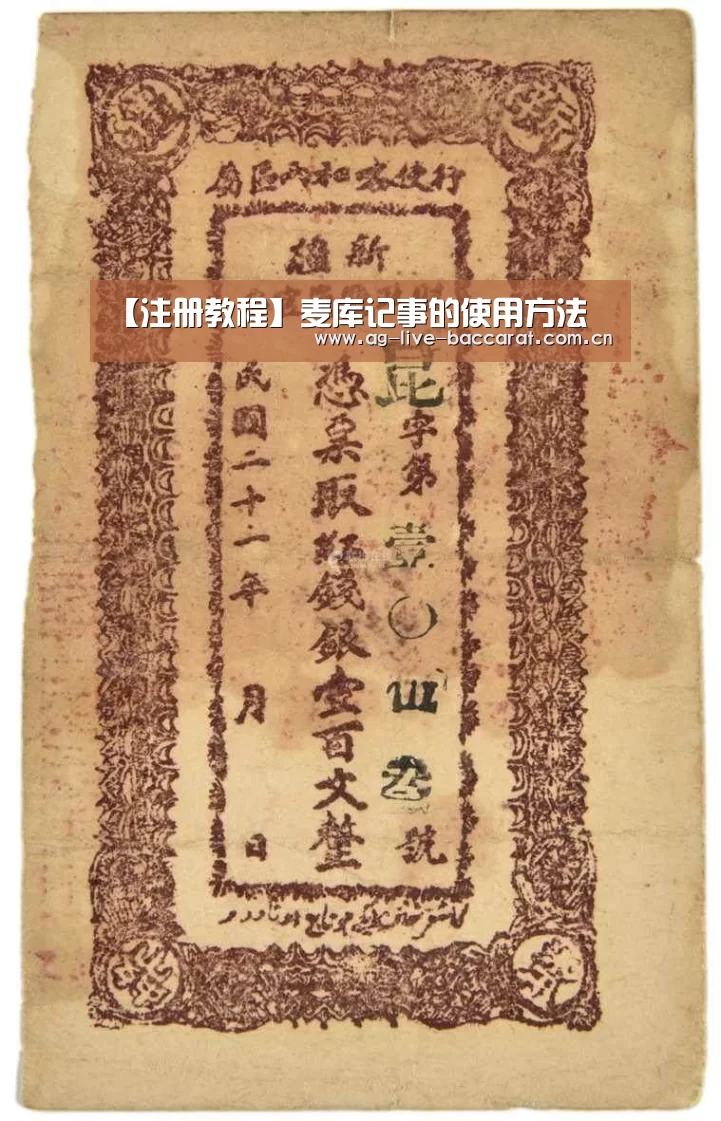 行使喀和兩區屬
新疆
【注册教程】麦库记事的使用方法
www.ag-live-baccarat.com.cn
昆字第壹〇四叁號
憑票取紅錢銀壹百文整
民國二十一年 月 日